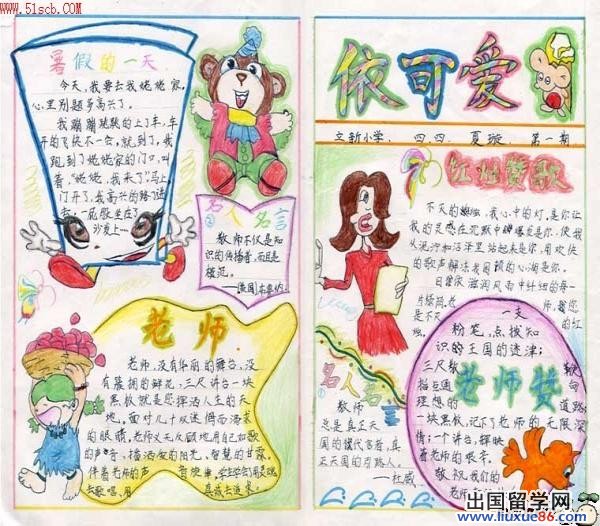 www.51scb.com
暑假的一天
今天,我要去我姥姥家,
心里别题多高兴了。
我蹦蹦跳跳的上了车,车
开的飞快不一会,就到了,我
跑到了姥姥家的门口,叫
着“姥姥,我来了”马上
门开了,我高兴的跨门进
去,一屁股坐在了
沙发上…
名人名言
教师不仅是知
识的传播者,而且是
模范。
老师
老师,没有华丽的舞台,没
有簇拥的鲜花,三尺讲台一块
黑板就是您挥洒人生的天
地。面对几十双迷惘而渴求
的眼睛,老师义无反顾地用自己如歌
的声音,播洒爱的阳光、智慧的甘露。
伴着老师的声
依可爱
立新小学、四四、夏璇、第一期
红烛赞歌
不灭的蜡烛,我心中的灯,是你让
我的灵感在沉默中爆发是你,使我
从泥泞和沼泽里站起来是你,用欢快
的歌声解活我
老师赞
一支
粉笔,点拨知
识的王国的迷津;
三尺教
指点通
理想的
道路
块黑板,记下了老师的无限深
情;一个讲台,辉映
着老师的艰辛。
敬祝我们的
名人名言
教师
总是真正天
国的代言者,真
正天国的引路人。
—杜威
出国留学网
www.liuxue86.com